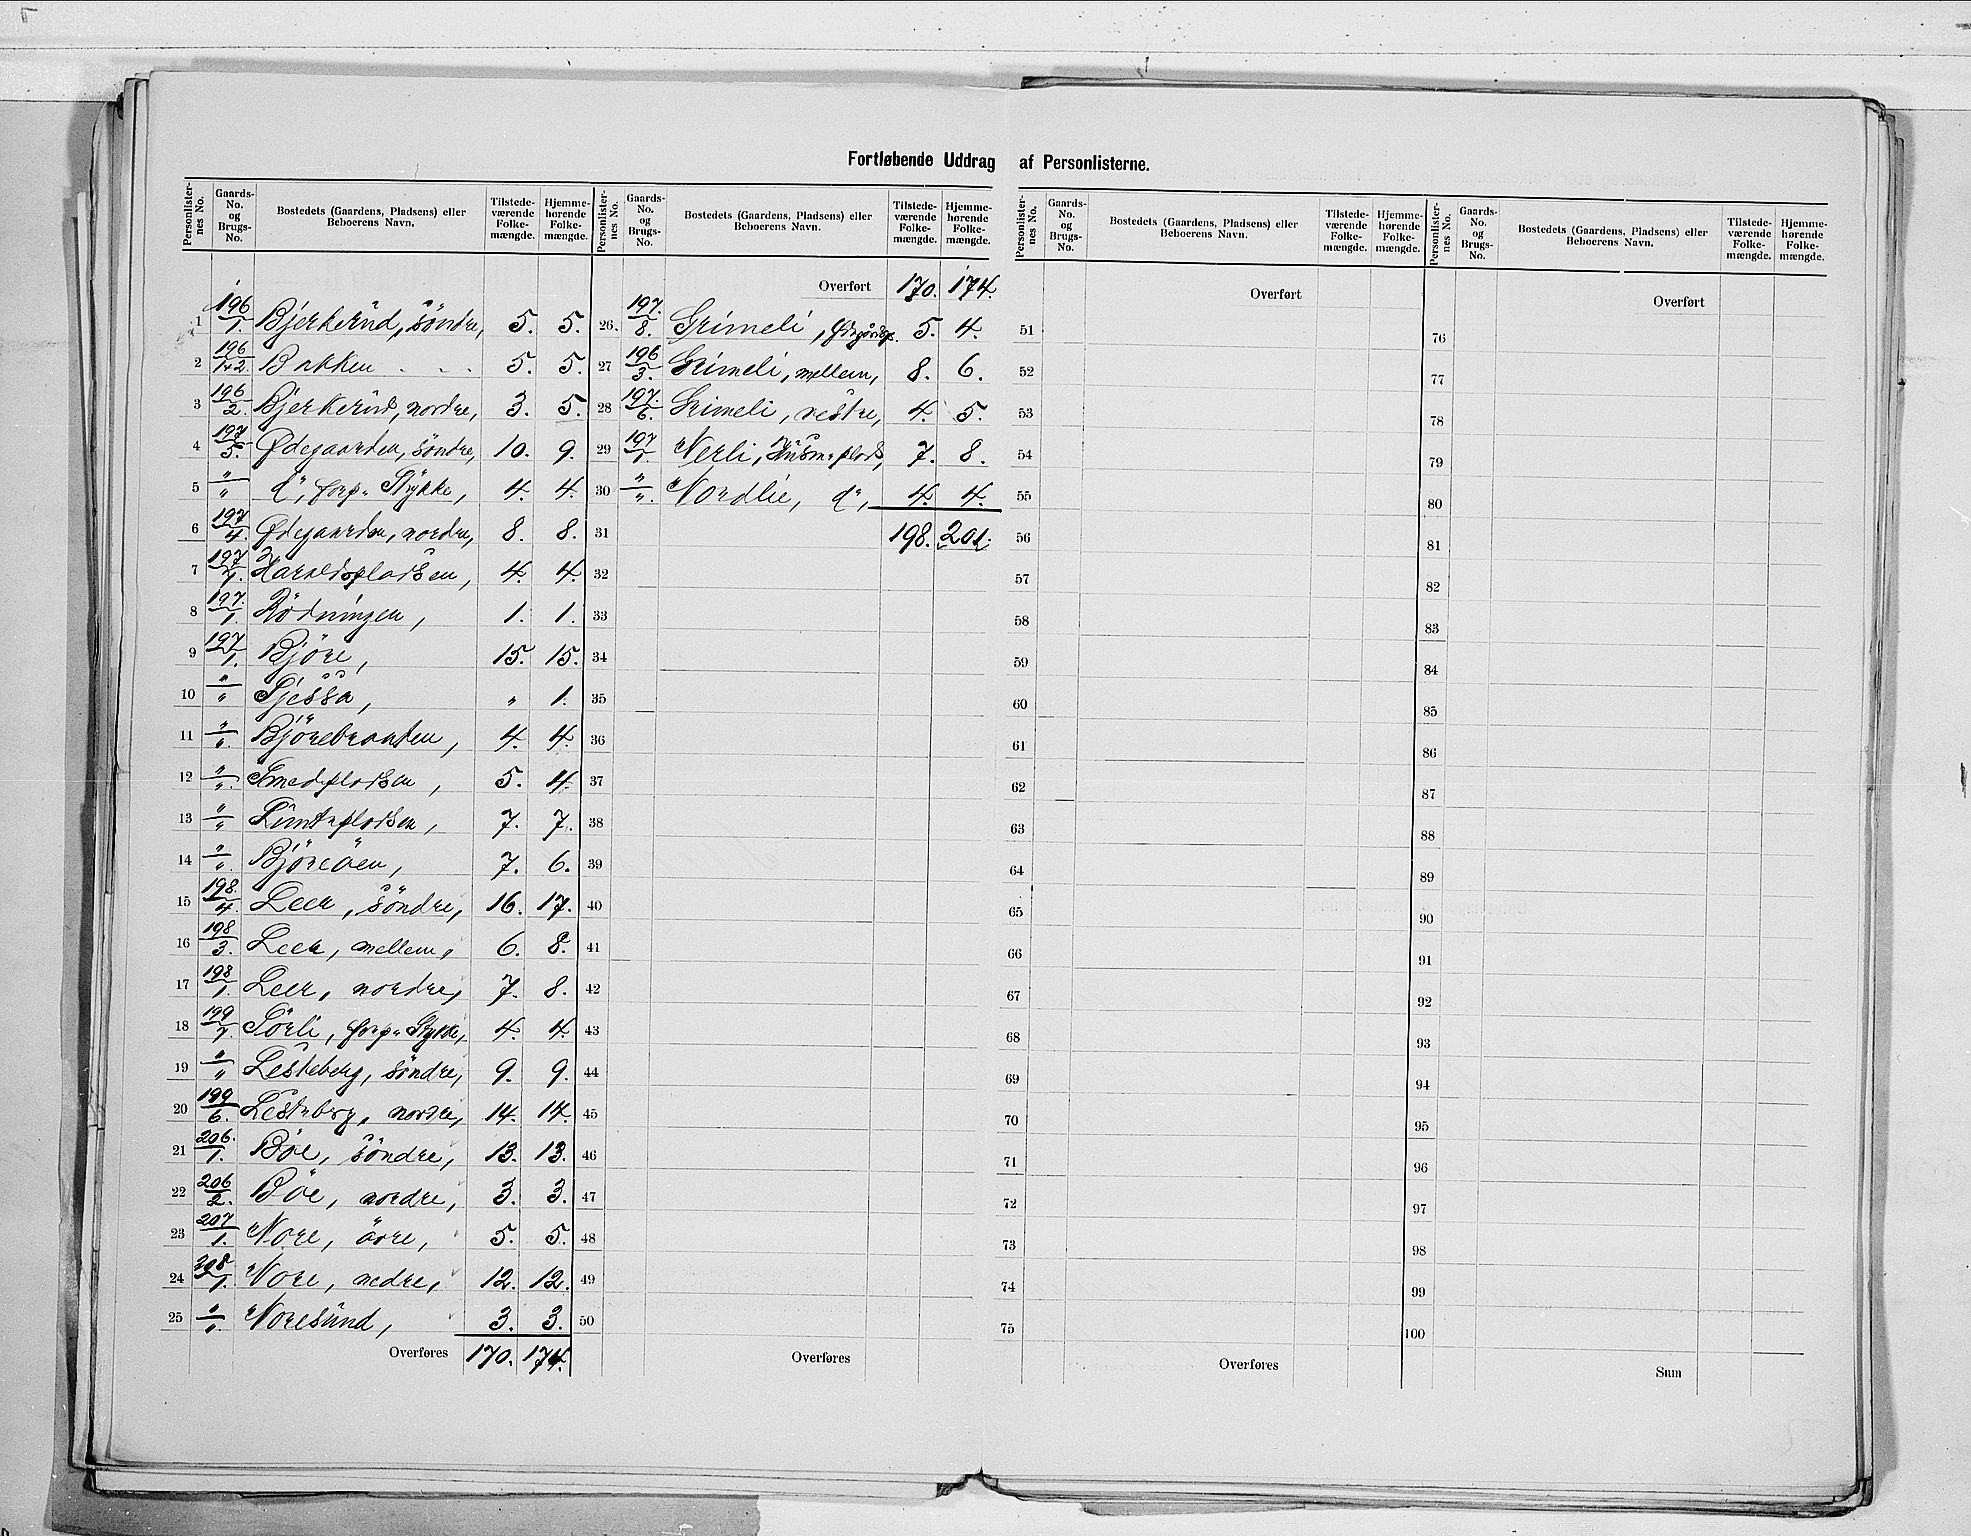 Fortløbende Uddrag af Personlisterne.
Personlisternes No. Gaards-No. og Brugs-No. Bostedets (Gaardens, Pladsens) eller Beboerens Navn. Tilstedeværende Folkemængde. Hjemmehørende Folkemængde. Personlisternes No. Gaards-No. og Brugs-No. Bostedets (Gaardens, Pladsens) eller Beboerens Navn. Tilstedeværende Folkemængde. Hjemmehørende Folkemængde.
1 196/1. Bjerkerud, söndre, 5. 5.
2 196/1+2. Bakken 5. 5.
3 196/2. Bjerkerud, nordre, 3. 5.
4 197/5. Ødegaarden, söndre, 10. 9.
5 "/" do, forp. Stykke, 4. 4.
6 197/4. Ødegaarden, nordre, 8. 8.
7 197/7. Haraldspladsen, 4. 4.
8 197/1. Rödningen, 1. 1.
9 197/1. Björe, 15. 15.
10 "/" Sjessa, " 1.
11 "/" Björebraaten, 4. 4.
12 "/" Smedpladsen, 5. 4.
13 "/" Luntepladsen, 7. 7.
14 "/" Björeöen, 7. 6.
15 198/4. Leer, söndre, 16. 17.
16 198/3. Leer, mellem, 6. 8.
17 198/1. Leer, nordre, 7. 8.
18 199/7. Sörli, forp. Stykke, 4. 4.
19 "/" Lesteberg, söndre, 9. 9.
20 199/6. Lesteberg, nordre, 14. 14.
21 206/1. Böe, söndre, 13. 13.
22 206/2. Böe, nordre, 3. 3.
23 207/1. Nore, övre, 5. 5.
24 208/1. Nore, nedre, 12. 12.
25 "/" Noresund, 3. 3.
Overføres 170. 174.
Overført 170. 174.
26. 197/8. Grimeli, 5. 4.
27 196/3. Grimeli, mellem, 8. 6.
28 197/6. Grimeli, vestre, 4. 5.
29 197/1. Nerli, Husm. plads, 7. 8.
30 "/" Nordlie, do, 4. 4.
31 198. 201.
32
33
34
35
36
37
38
39
40
41
42
43
44
45
46
47
48
49
50
Overføres
Personlisternes No. Gaards-No. og Brugs-No. Bostedets (Gaardens, Pladsens) eller Beboerens Navn. Tilstedeværende Folkemængde. Hjemmehørende Folkemængde. Personlisternes No. Gaards-No. og Brugs-No. Bostedets (Gaardens, Pladsens) eller Beboerens Navn. Tilstedeværende Folkemængde. Hjemmehørende Folkemængde.
Overført
51
52
53
54
55
56
57
58
59
60
61
62
63
64
65
66
67
68
69
70
71
72
73
74
75
Overføres
Overført
76
77
78
79
80
81
82
83
84
85
86
87
88
89
90
91
92
93
94
95
96
97
98
99
100
Sum